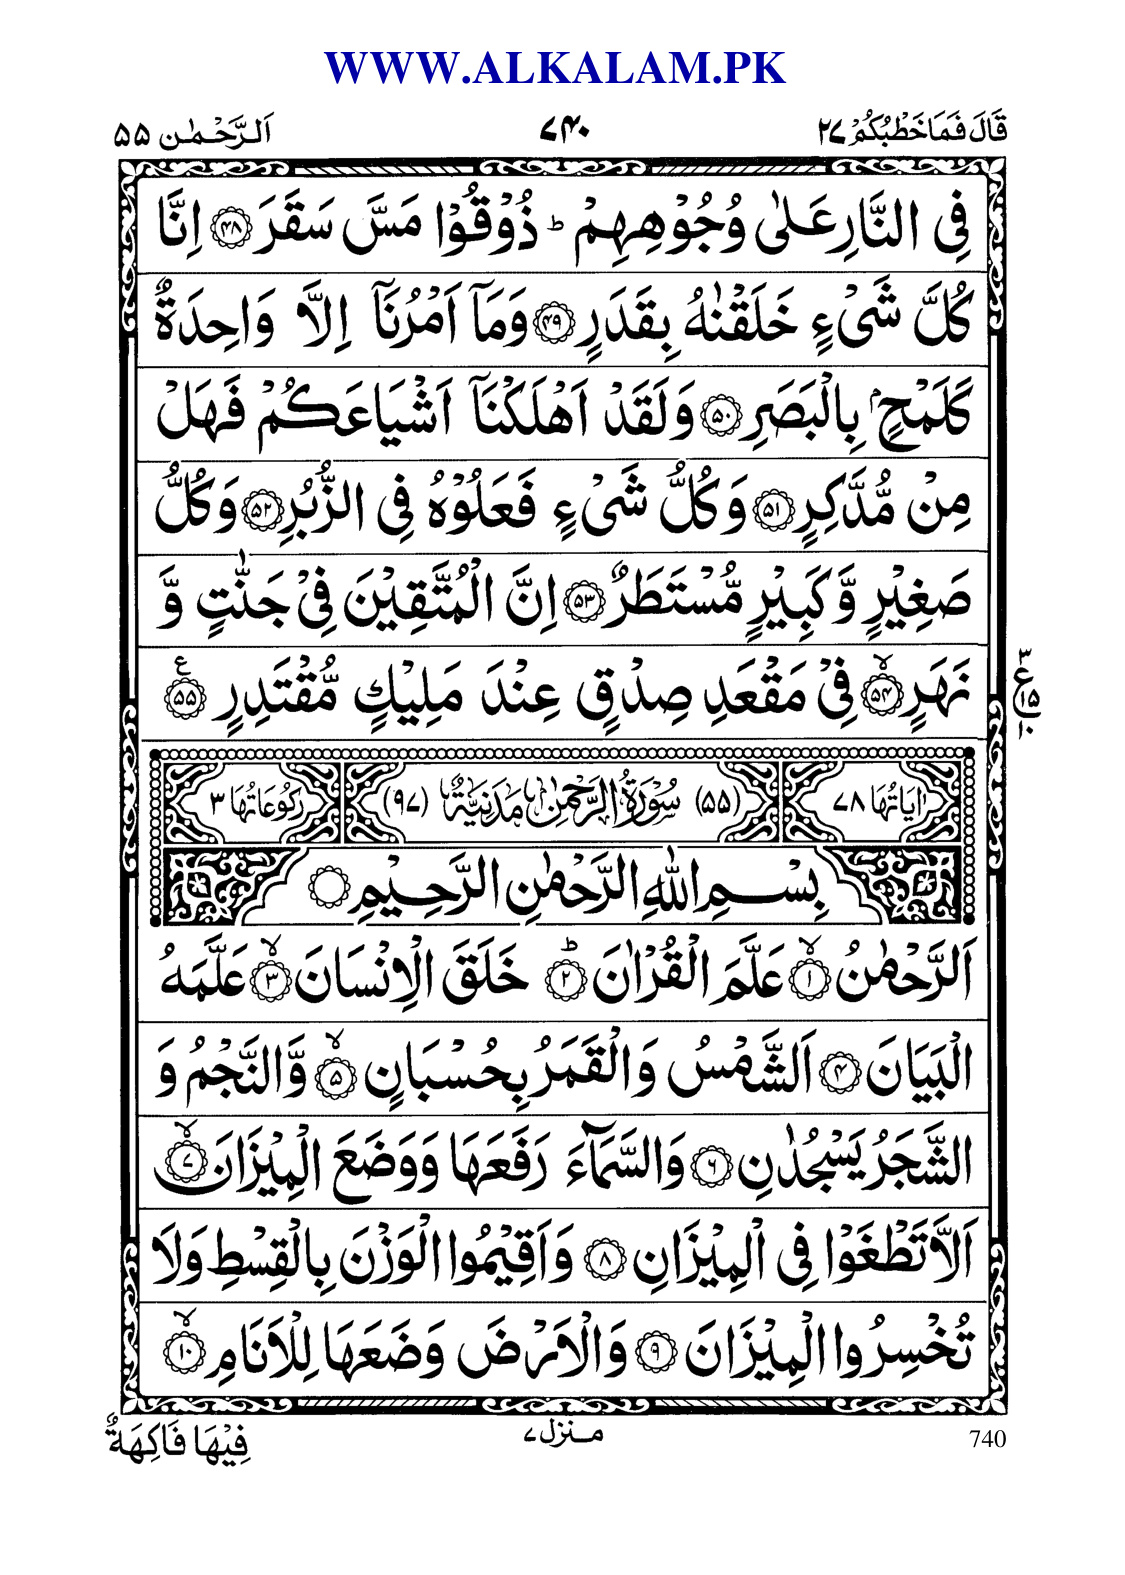 WWW.ALKALAM.PK
قَالَ فَمَا خَطْبُكُمْ ۲۷ ۷۴۰ اَلرَّحْمٰن ۵۵
فِی النَّارِ عَلٰی وُجُوْهِهِمْ ؕ ذُوْقُوْا مَسَّ سَقَرَ ﴿۴۸﴾ اِنَّا
كُلَّ شَیْءٍ خَلَقْنٰهُ بِقَدَرٍ ﴿۴۹﴾ وَمَاۤ اَمْرُنَاۤ اِلَّا وَاحِدَةٌ
كَلَمْحٍۭ بِالْبَصَرِ ﴿۵۰﴾ وَلَقَدْ اَهْلَكْنَاۤ اَشْیَاعَكُمْ فَهَلْ
مِنْ مُّدَّكِرٍ ﴿۵۱﴾ وَكُلُّ شَیْءٍ فَعَلُوْهُ فِی الزُّبُرِ ﴿۵۲﴾ وَكُلُّ
صَغِیْرٍ وَّكَبِیْرٍ مُّسْتَطَرٌ ﴿۵۳﴾ اِنَّ الْمُتَّقِیْنَ فِیْ جَنّٰتٍ وَّ
نَهَرٍ ﴿۵۴﴾ۙ فِیْ مَقْعَدِ صِدْقٍ عِنْدَ مَلِیْكٍ مُّقْتَدِرٍ ﴿۵۵﴾ ع
۳ ع ۱۵ ۱۰
اٰیَاتُهَا ۷۸ (۵۵) سُوْرَةُ الرَّحْمٰنِ مَدَنِیَّةٌ (۹۷) رُكُوْعَاتُهَا ۳
بِسْمِ اللهِ الرَّحْمٰنِ الرَّحِیْمِ
اَلرَّحْمٰنُ ﴿۱﴾ۙ عَلَّمَ الْقُرْاٰنَ ﴿۲﴾ؕ خَلَقَ الْاِنْسَانَ ﴿۳﴾ۙ عَلَّمَهُ
الْبَیَانَ ﴿۴﴾ اَلشَّمْسُ وَالْقَمَرُ بِحُسْبَانٍ ﴿۵﴾ۙ وَّالنَّجْمُ وَ
الشَّجَرُ یَسْجُدٰنِ ﴿۶﴾ وَالسَّمَآءَ رَفَعَهَا وَوَضَعَ الْمِیْزَانَ ﴿۷﴾ۙ
اَلَّا تَطْغَوْا فِی الْمِیْزَانِ ﴿۸﴾ وَاَقِیْمُوا الْوَزْنَ بِالْقِسْطِ وَلَا
تُخْسِرُوا الْمِیْزَانَ ﴿۹﴾ وَالْاَرْضَ وَضَعَهَا لِلْاَنَامِ ﴿۱۰﴾ۙ
740 منزل ۷ فِیْهَا فَاكِهَةٌ